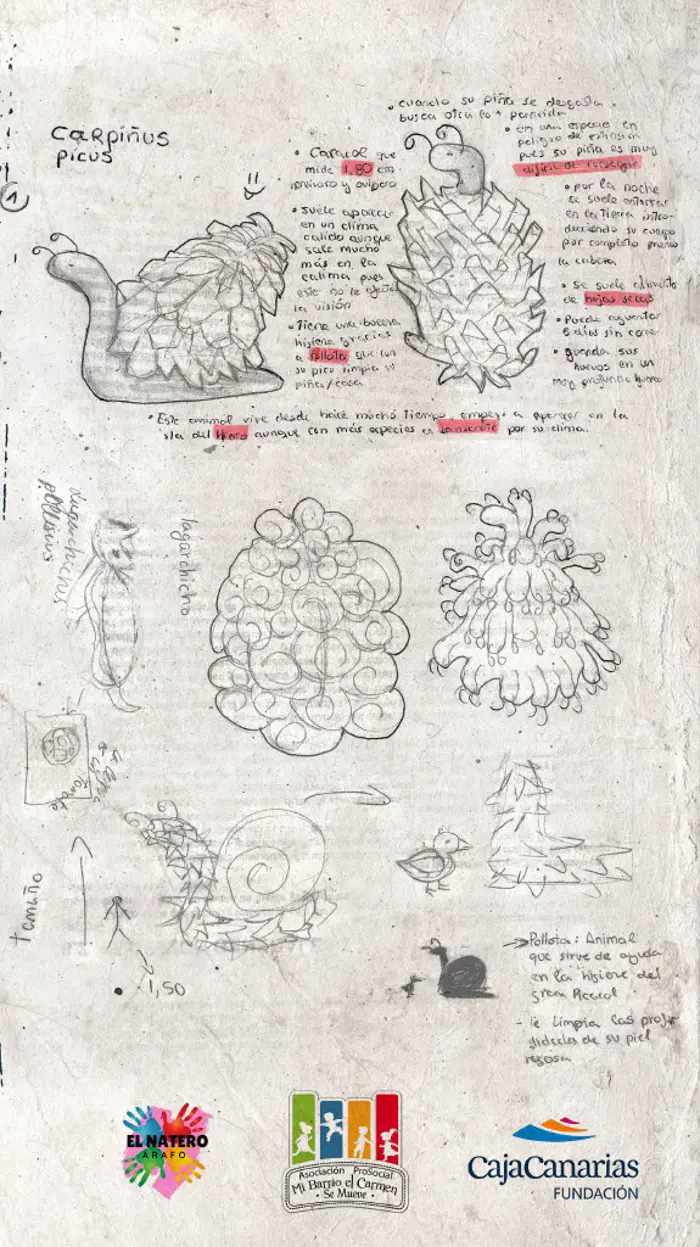 Carpiñus
picus
1
• Caracol que
mide 1,80 cm
y ovíparo
• Suele aparecer
en un clima
calido aunque
sale mucho
más en la
calima pues
este no le afecta
la visión
• Tiene una buena
higiene gracias
a Pollota que con
su pico limpia su
piña/casa
• cuando su piña se desgasta
busca otra
• en una especie en
peligro de extinsión
pues su piña es muy
dificil de conseguir
• por la noche
se suele enterrar
en la tierra intro-
duciendo su cuerpo
por completo menos
la cabeza
• Se suele
de hojas secas
• Puede aguantar
6 días sin comer
• guarda sus
huevos en un
muy profundo
• Este animal vive desde hace mucho tiempo, empezo a aparecer en la
isla del Hierro aunque con más especies en Lanzarote por su clima.
lagarchicho
tamaño
1,50
Pollota: Animal
que sirve de ayuda
en la higiene del
gran
- le limpia las profun
didades de su piel
EL NATERO
ARAFO
Asociación ProSocial
Mi Barrio el Carmen
• Se Mueve •
CajaCanarias
FUNDACIÓN